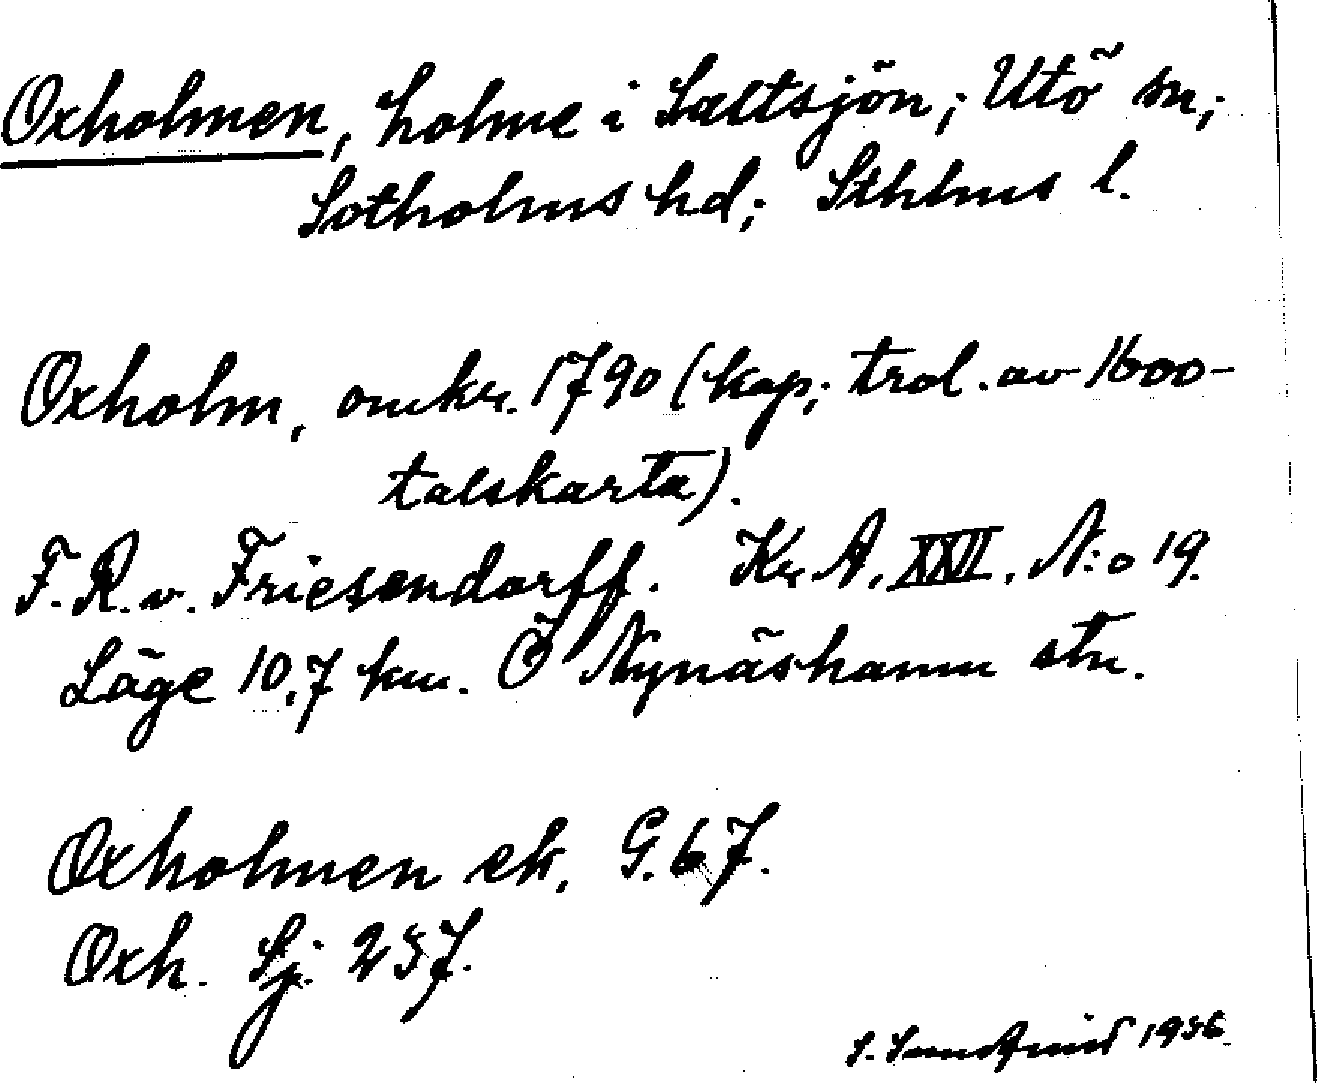 Oxholmen, holme i Saltsjön; Utö sn;
Sotholms hd; Sthlms l.
Oxholm, omkr. 1790 (kop; trol. av 1600-
talskarta).
F. R. v. Friesendorff. Kr A. XXII. N:o 19.
Läge 10,7 km. Ö Nynäshamn stn.
Oxholmen ek. G. 67.
Oxh. Sj. 237.
S. 1936